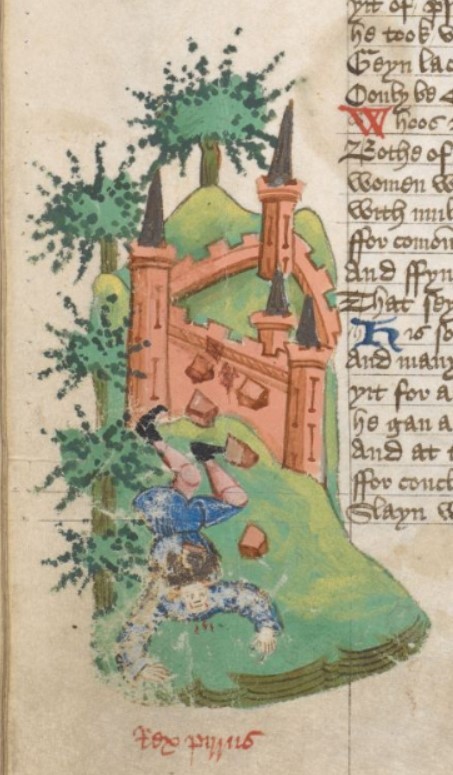 yit of
he took
Seyn lac
Oonly be
Whoos
Bothe of
women w
with mul
ffor comou
and ffyn
That sey
His so
And many
yit for a
he gan a
And at t
ffor concl
Slayn w
Rex pirrus